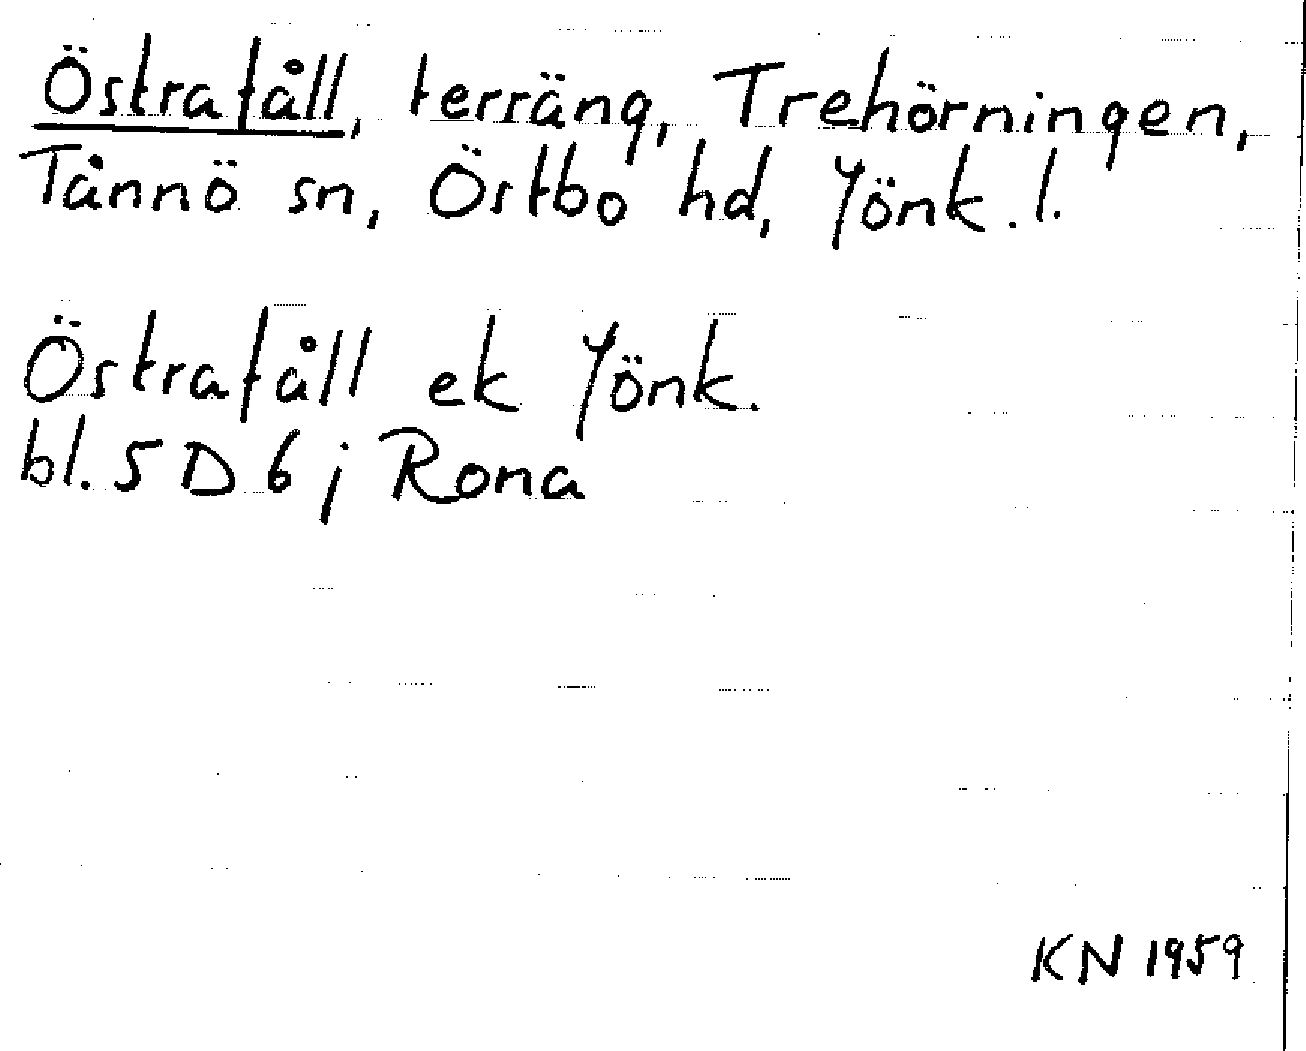 Östrafåll, terräng, Trehörningen,
Tånnö sn, Östbo hd, Jönk. l.
Östrafåll ek Jönk.
bl. 5 D 6 j Rona
KN 1959